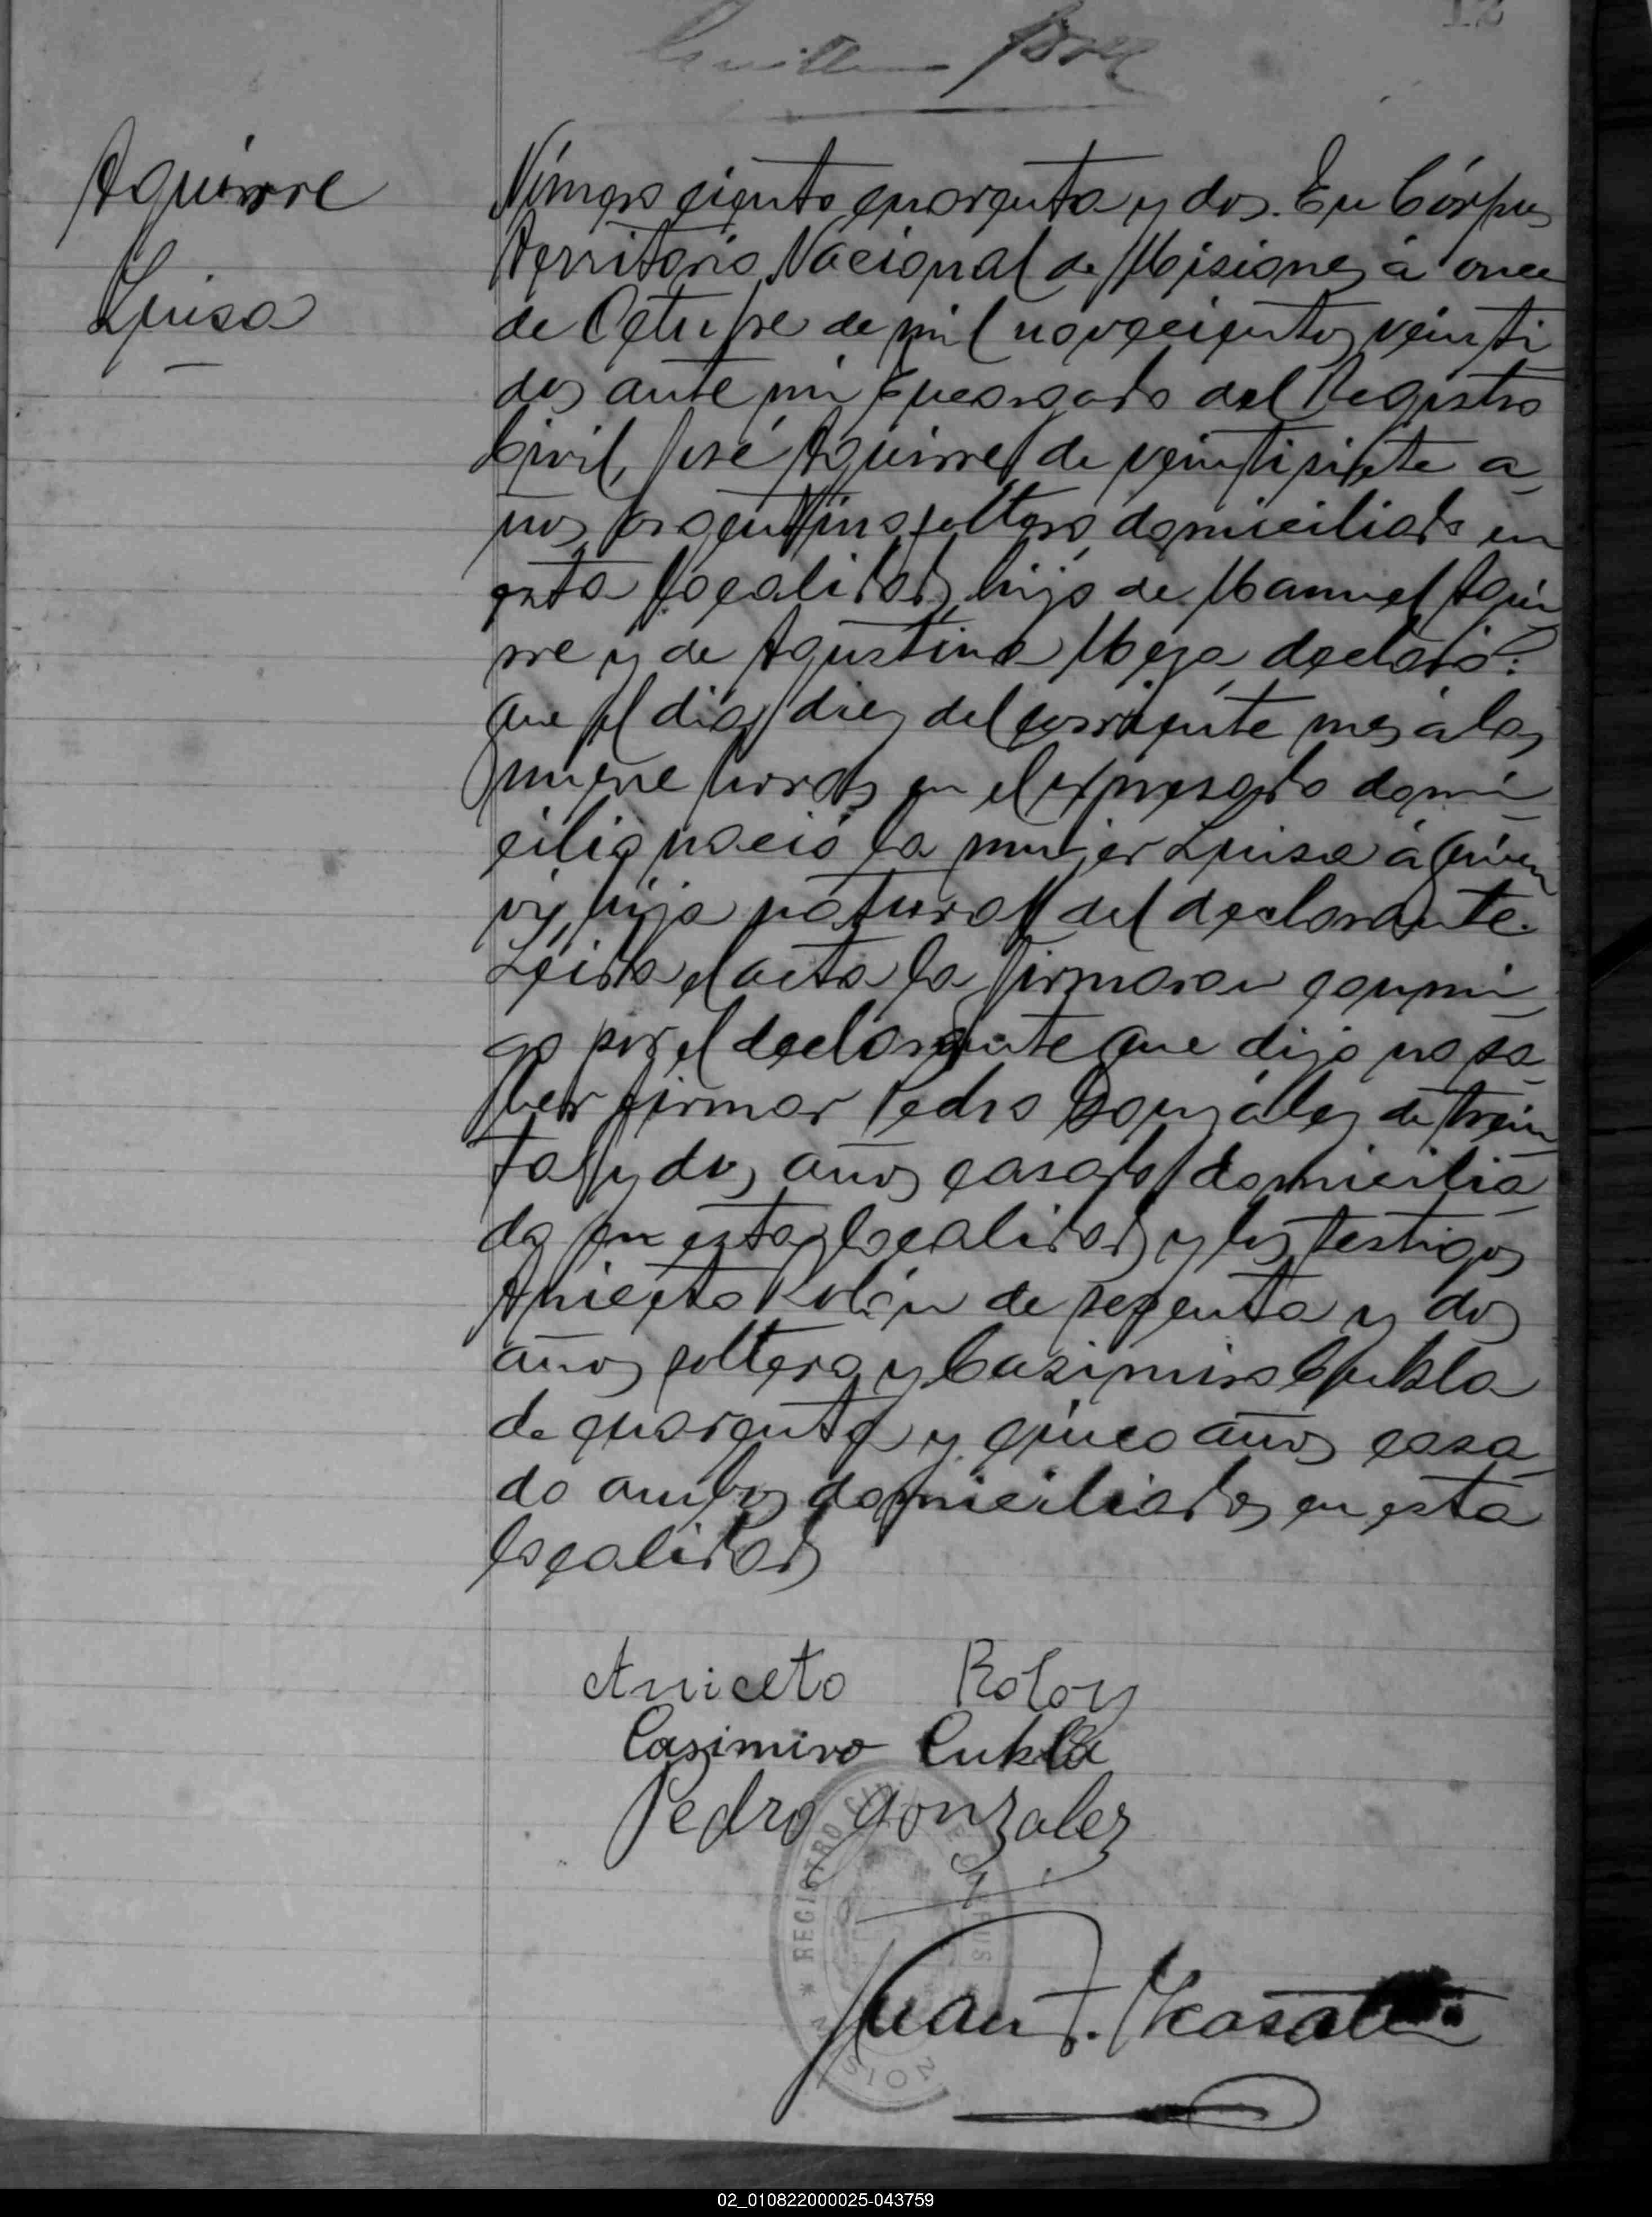 Aguirre
Luisa
Número ciento cuarenta y dos. En Córpus
Territorio Nacional de Misiones á once
de Octubre de mil novecientos veinti
dos ante mi Encargado del Registro
Civil, José Aguirre de veintisiete a
ños argentino soltero domiciliado en
esta localidad, hijo de Manuel Aguir
rre y de Agustina Meza declaró:
Que el día diez del corriente mes á las
nueve horas en el expresado domi
cilio nació la mujer Luisa á quien
vi, hija natural del declarante.
Leida el acta la firmaron conmi
go por el declarante que dijo no sa
ber firmar Pedro González de trein
ta y dos años casado domicilia
do en esta localidad y los testigos
Aniceto Rolón de sesenta y dos
años soltero y Casimiro Cukla
de cuarenta y cinco años casa
do ambos domiciliados en esta
localidad
Aniceto Rolon
Casimiro Cukla
Pedro Gonzalez
REGISTRO CIVIL
Juan F.
02_010822000025-043759